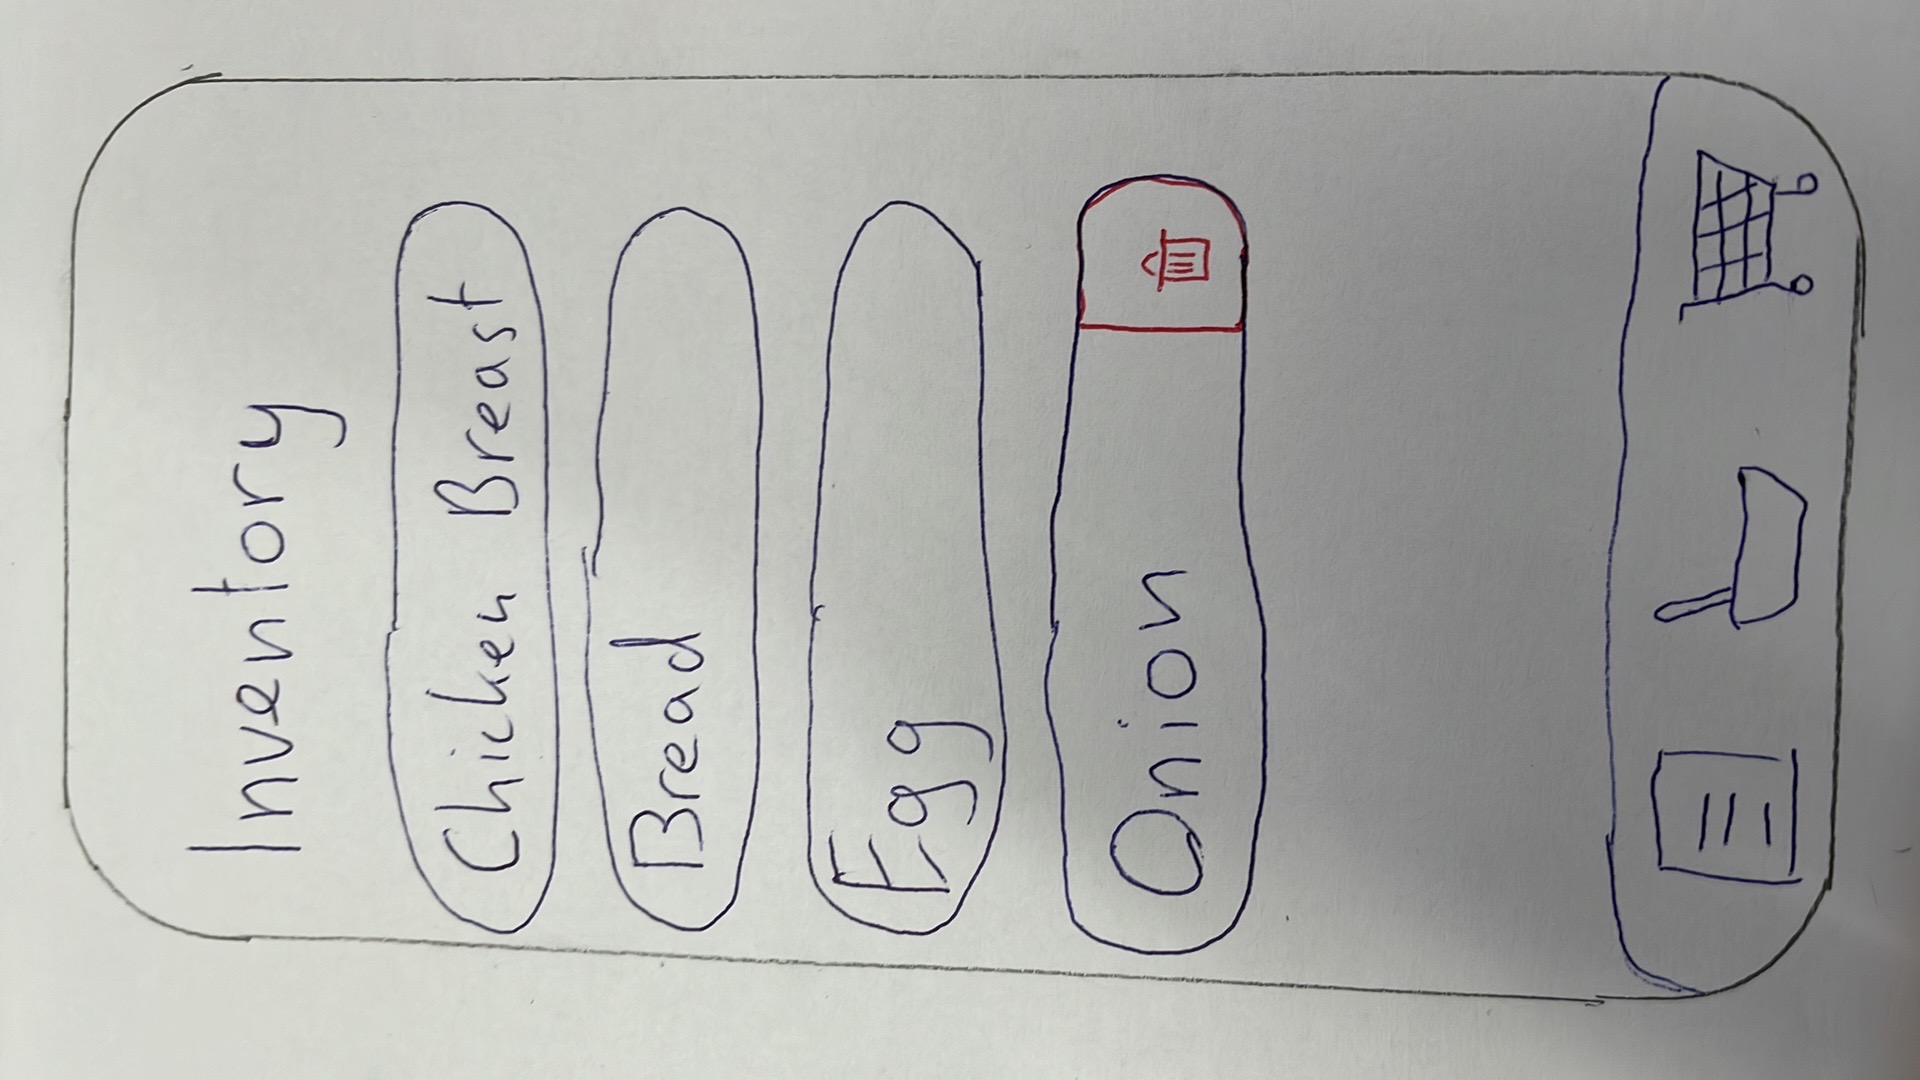 Inventory
Chicken Breast
Bread
Egg
Onion